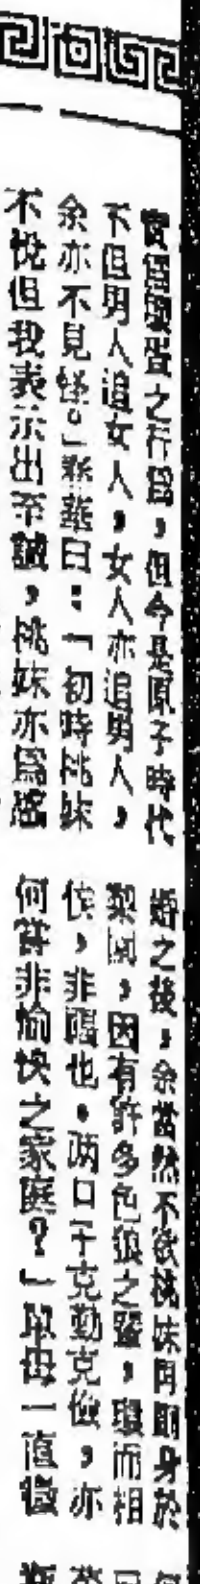 實爲壞蛋之行爲，但今是原子時代
不但男人追女人，女人亦追男人，
余亦不見怪。」燕華曰：「初時桃妹
不悅但我表示出至誠，桃妹亦爲
婚之後，余當然不欲桃妹再廁身於
梨園，因有許多色狼之輩，環而相
俟，非福也。両口子克勤克儉，亦
何嘗非愉快之家庭？」取母一直